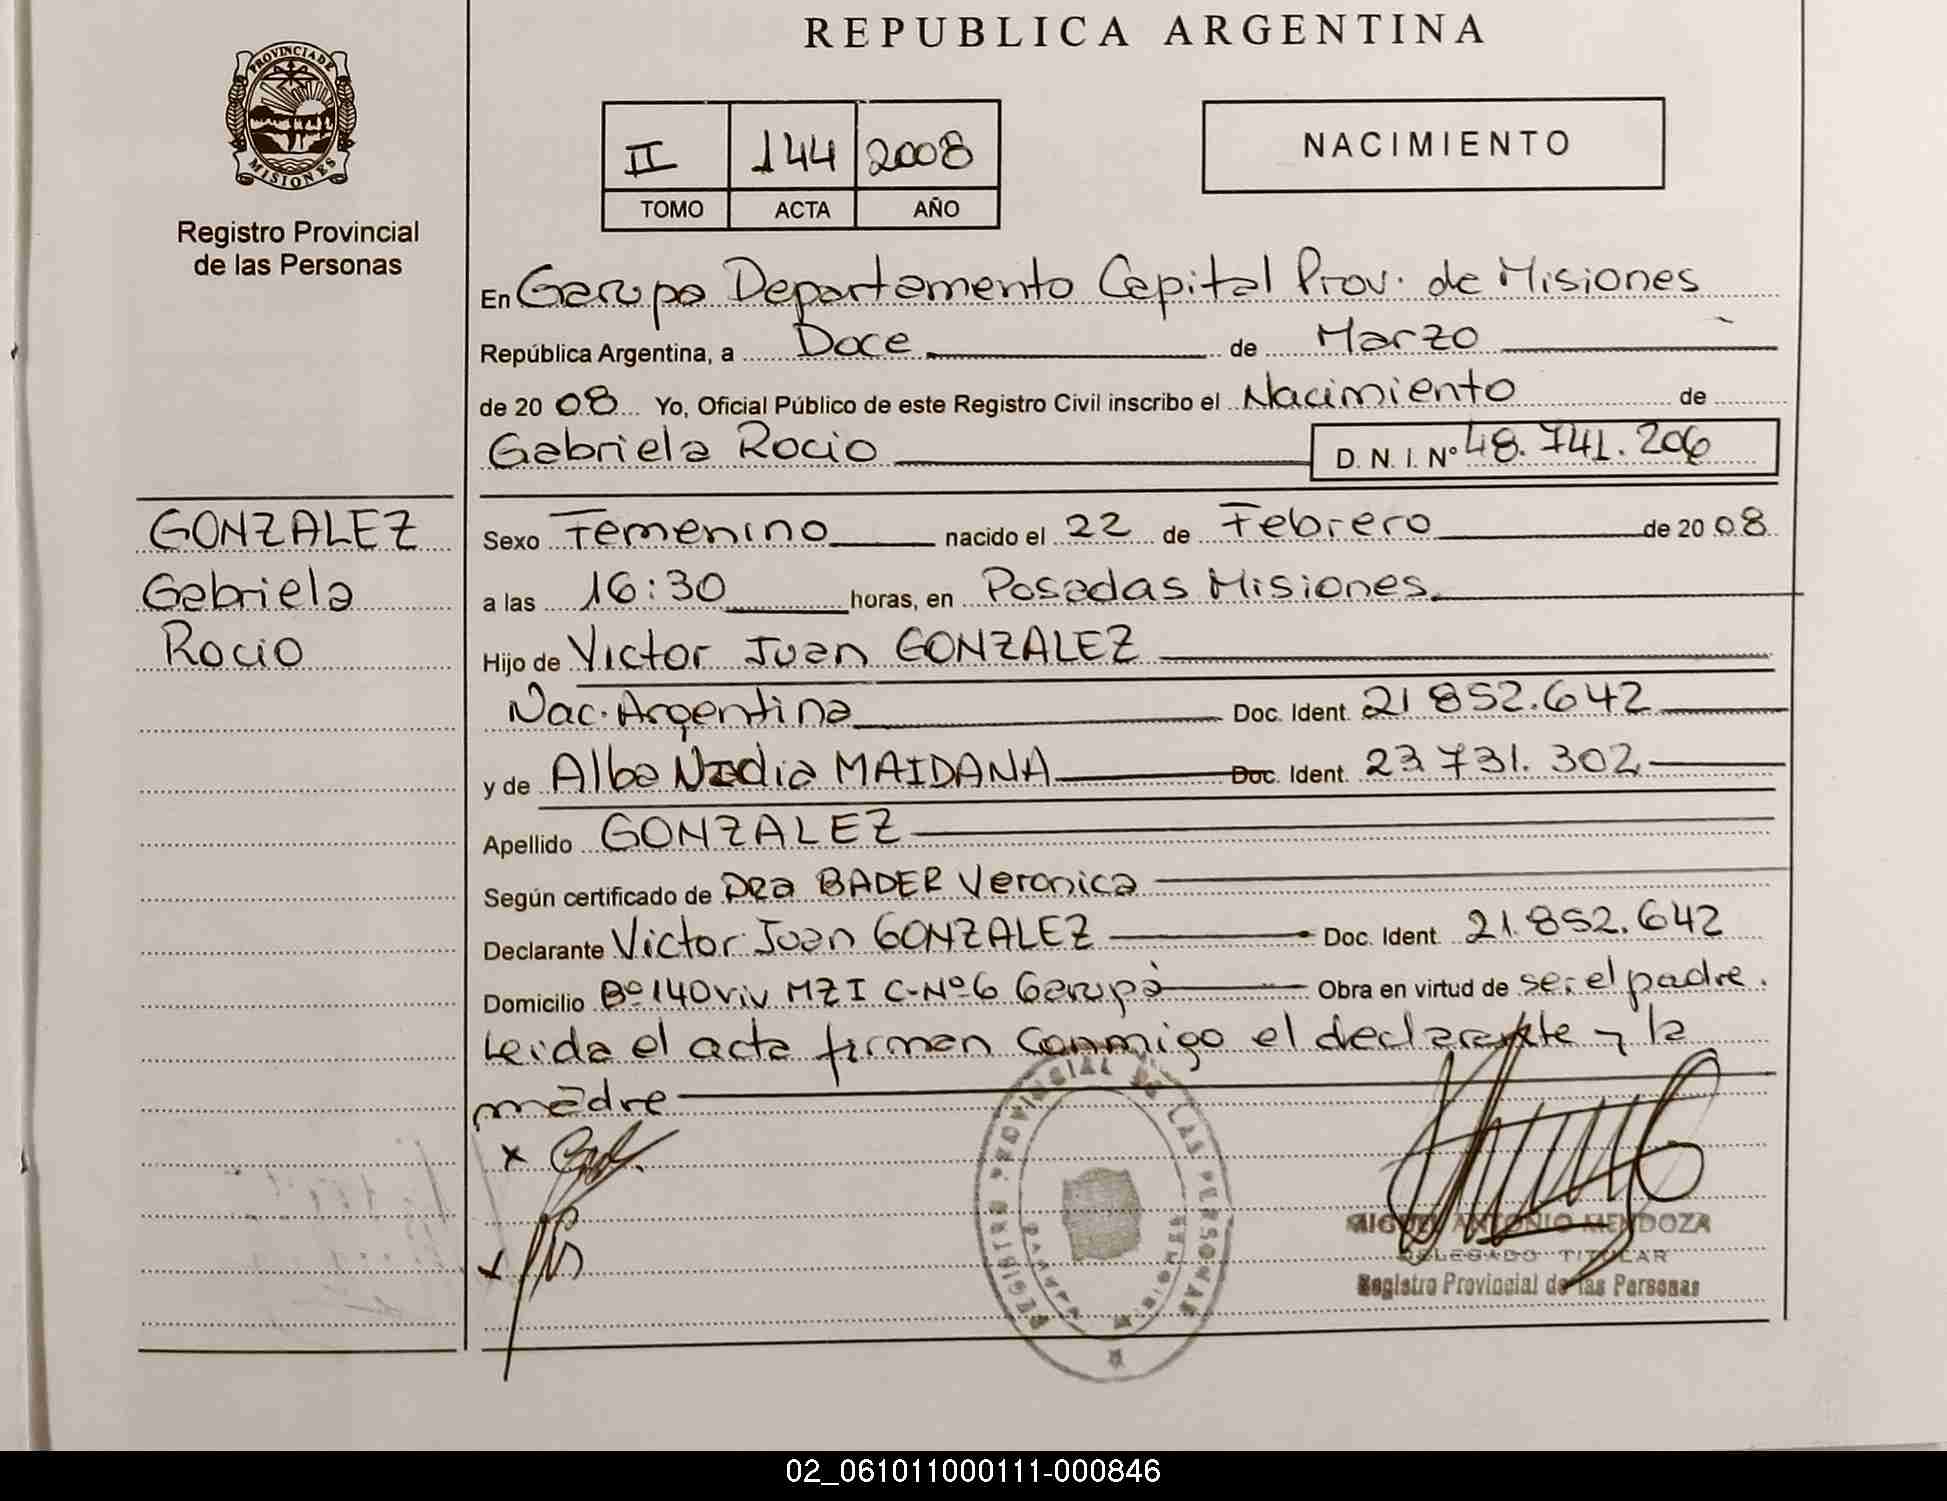 REPUBLICA ARGENTINA
PROVINCIA DE
MISIONES
Registro Provincial
de las Personas
II 144 2008
TOMO ACTA AÑO
NACIMIENTO
En Garupa Departamento Capital Prov. de Misiones
República Argentina, a Doce de Marzo
de 2008 Yo, Oficial Público de este Registro Civil inscribo el Nacimiento de
Gabriela Rocio D. N. I. Nº 48.741.206
GONZALEZ
Gabriela
Rocio
Sexo Femenino nacido el 22 de Febrero de 2008
a las 16:30 horas, en Posadas Misiones
Hijo de Victor Juan GONZALEZ
Nac. Argentina Doc. Ident. 21 852.642
y de Alba Nidia MAIDANA Doc. Ident. 23.731.302
Apellido GONZALEZ
Según certificado de Dra BADER Veronica
Declarante Victor Juan GONZALEZ Doc. Ident. 21.852.642
Domicilio Bº 140 viv MZ I C-Nº6 Garupà Obra en virtud de ser el padre.
Leida el acta firman conmigo el declarante y la
madre
REGISTRO PROVINCIAL DE LAS PERSONAS
MIGUEL ANTONIO MENDOZA
DELEGADO TITULAR
Registro Provincial de las Personas
02_061011000111-000846